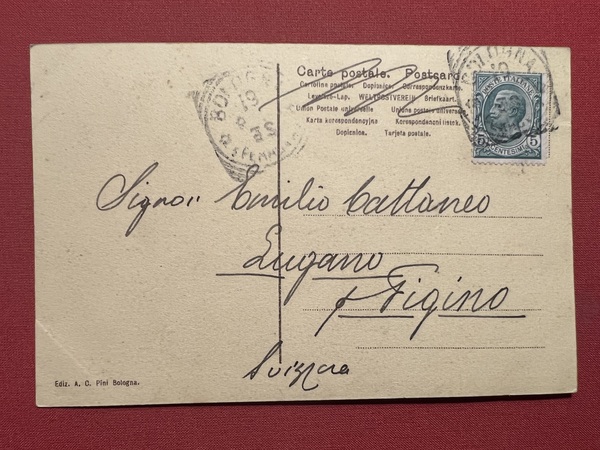 Carte postale. Postcard.
Cartolina postale. Dopisnice. Correspondenzkarte.
Levelező-Lap. WELTPOSTVEREIN Briefkaart.
Union Postale universelle Unione postale universale
Karta korespondencyjna Korespondenční lístek.
Dopisnica. Tarjeta postale.
BOLOGNA
BOLOGNA
POSTE ITALIANE
5
CENTESIMI
Signor Emilio Cattaneo
Lugano
p Figino
Svizzera
Ediz. A. C. Pini Bologna.